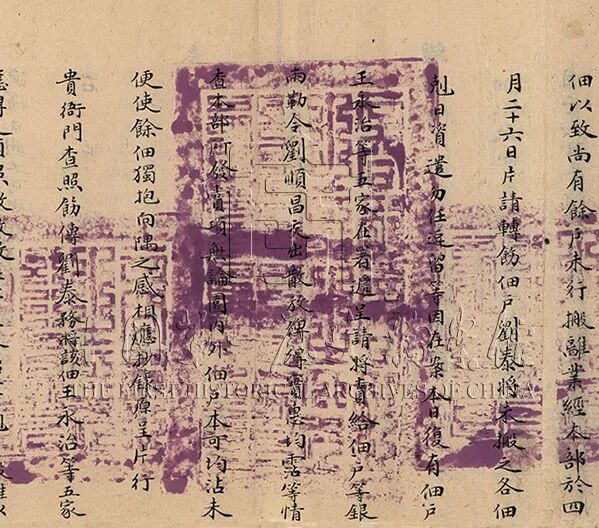 佃以致尚有餘戶未行搬離業經本部於四
月二十六日片請轉飭佃戶劉泰將未搬之各佃
剋日資遣勿任逗留等因在案本日復有佃戶
王永治等五家在署遞呈請將賞給佃戶等銀
兩勒令劉順昌交出散放俾得實惠均霑等情
查本部所發賞項無論園內外佃戶本可均沾未
便使餘佃獨抱向隅之感相應抄錄原呈片行
貴衙門查照飭傳劉泰務將該佃王永治等五家
THE FIRST HISTORICAL ARCHIVES OF CHINA